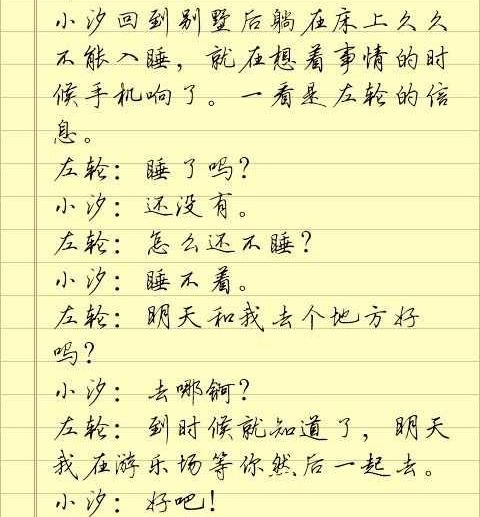 小汐回到别墅后躺在床上久久
不能入睡，就在想着事情的时
候手机响了。一看是左轮的信
息。
左轮：睡了吗？
小汐：还没有。
左轮：怎么还不睡？
小汐：睡不着。
左轮：明天和我去个地方好
吗？
小汐：去哪锕？
左轮：到时候就知道了，明天
我在游乐场等你然后一起去。
小汐：好吧！